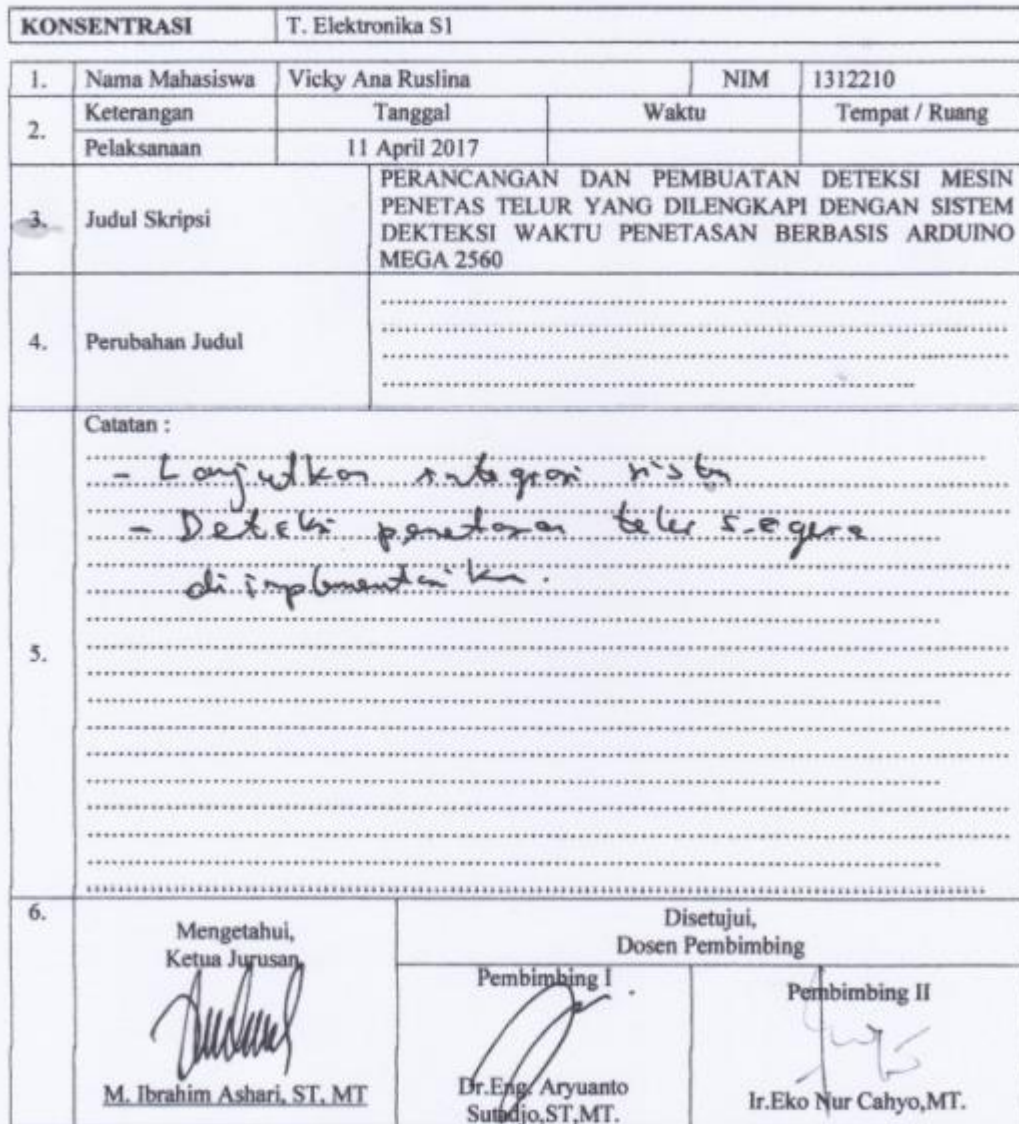 KONSENTRASI T. Elektronika S1
1. Nama Mahasiswa Vicky Ana Ruslina NIM 1312210
2. Keterangan Tanggal Waktu Tempat / Ruang
Pelaksanaan 11 April 2017
3. Judul Skripsi
PERANCANGAN DAN PEMBUATAN DETEKSI MESIN
PENETAS TELUR YANG DILENGKAPI DENGAN SISTEM
DEKTEKSI WAKTU PENETASAN BERBASIS ARDUINO
MEGA 2560
4. Perubahan Judul
5. Catatan :
- Lanjutkan integrasi sistem
- Deteksi penetasan telur segera
diimplementasikan.
6. Mengetahui,
Ketua Jurusan
M. Ibrahim Ashari, ST, MT
Disetujui,
Dosen Pembimbing
Pembimbing I
Dr.Eng. Aryuanto
Sutadjo,ST,MT.
Pembimbing II
Ir.Eko Nur Cahyo,MT.